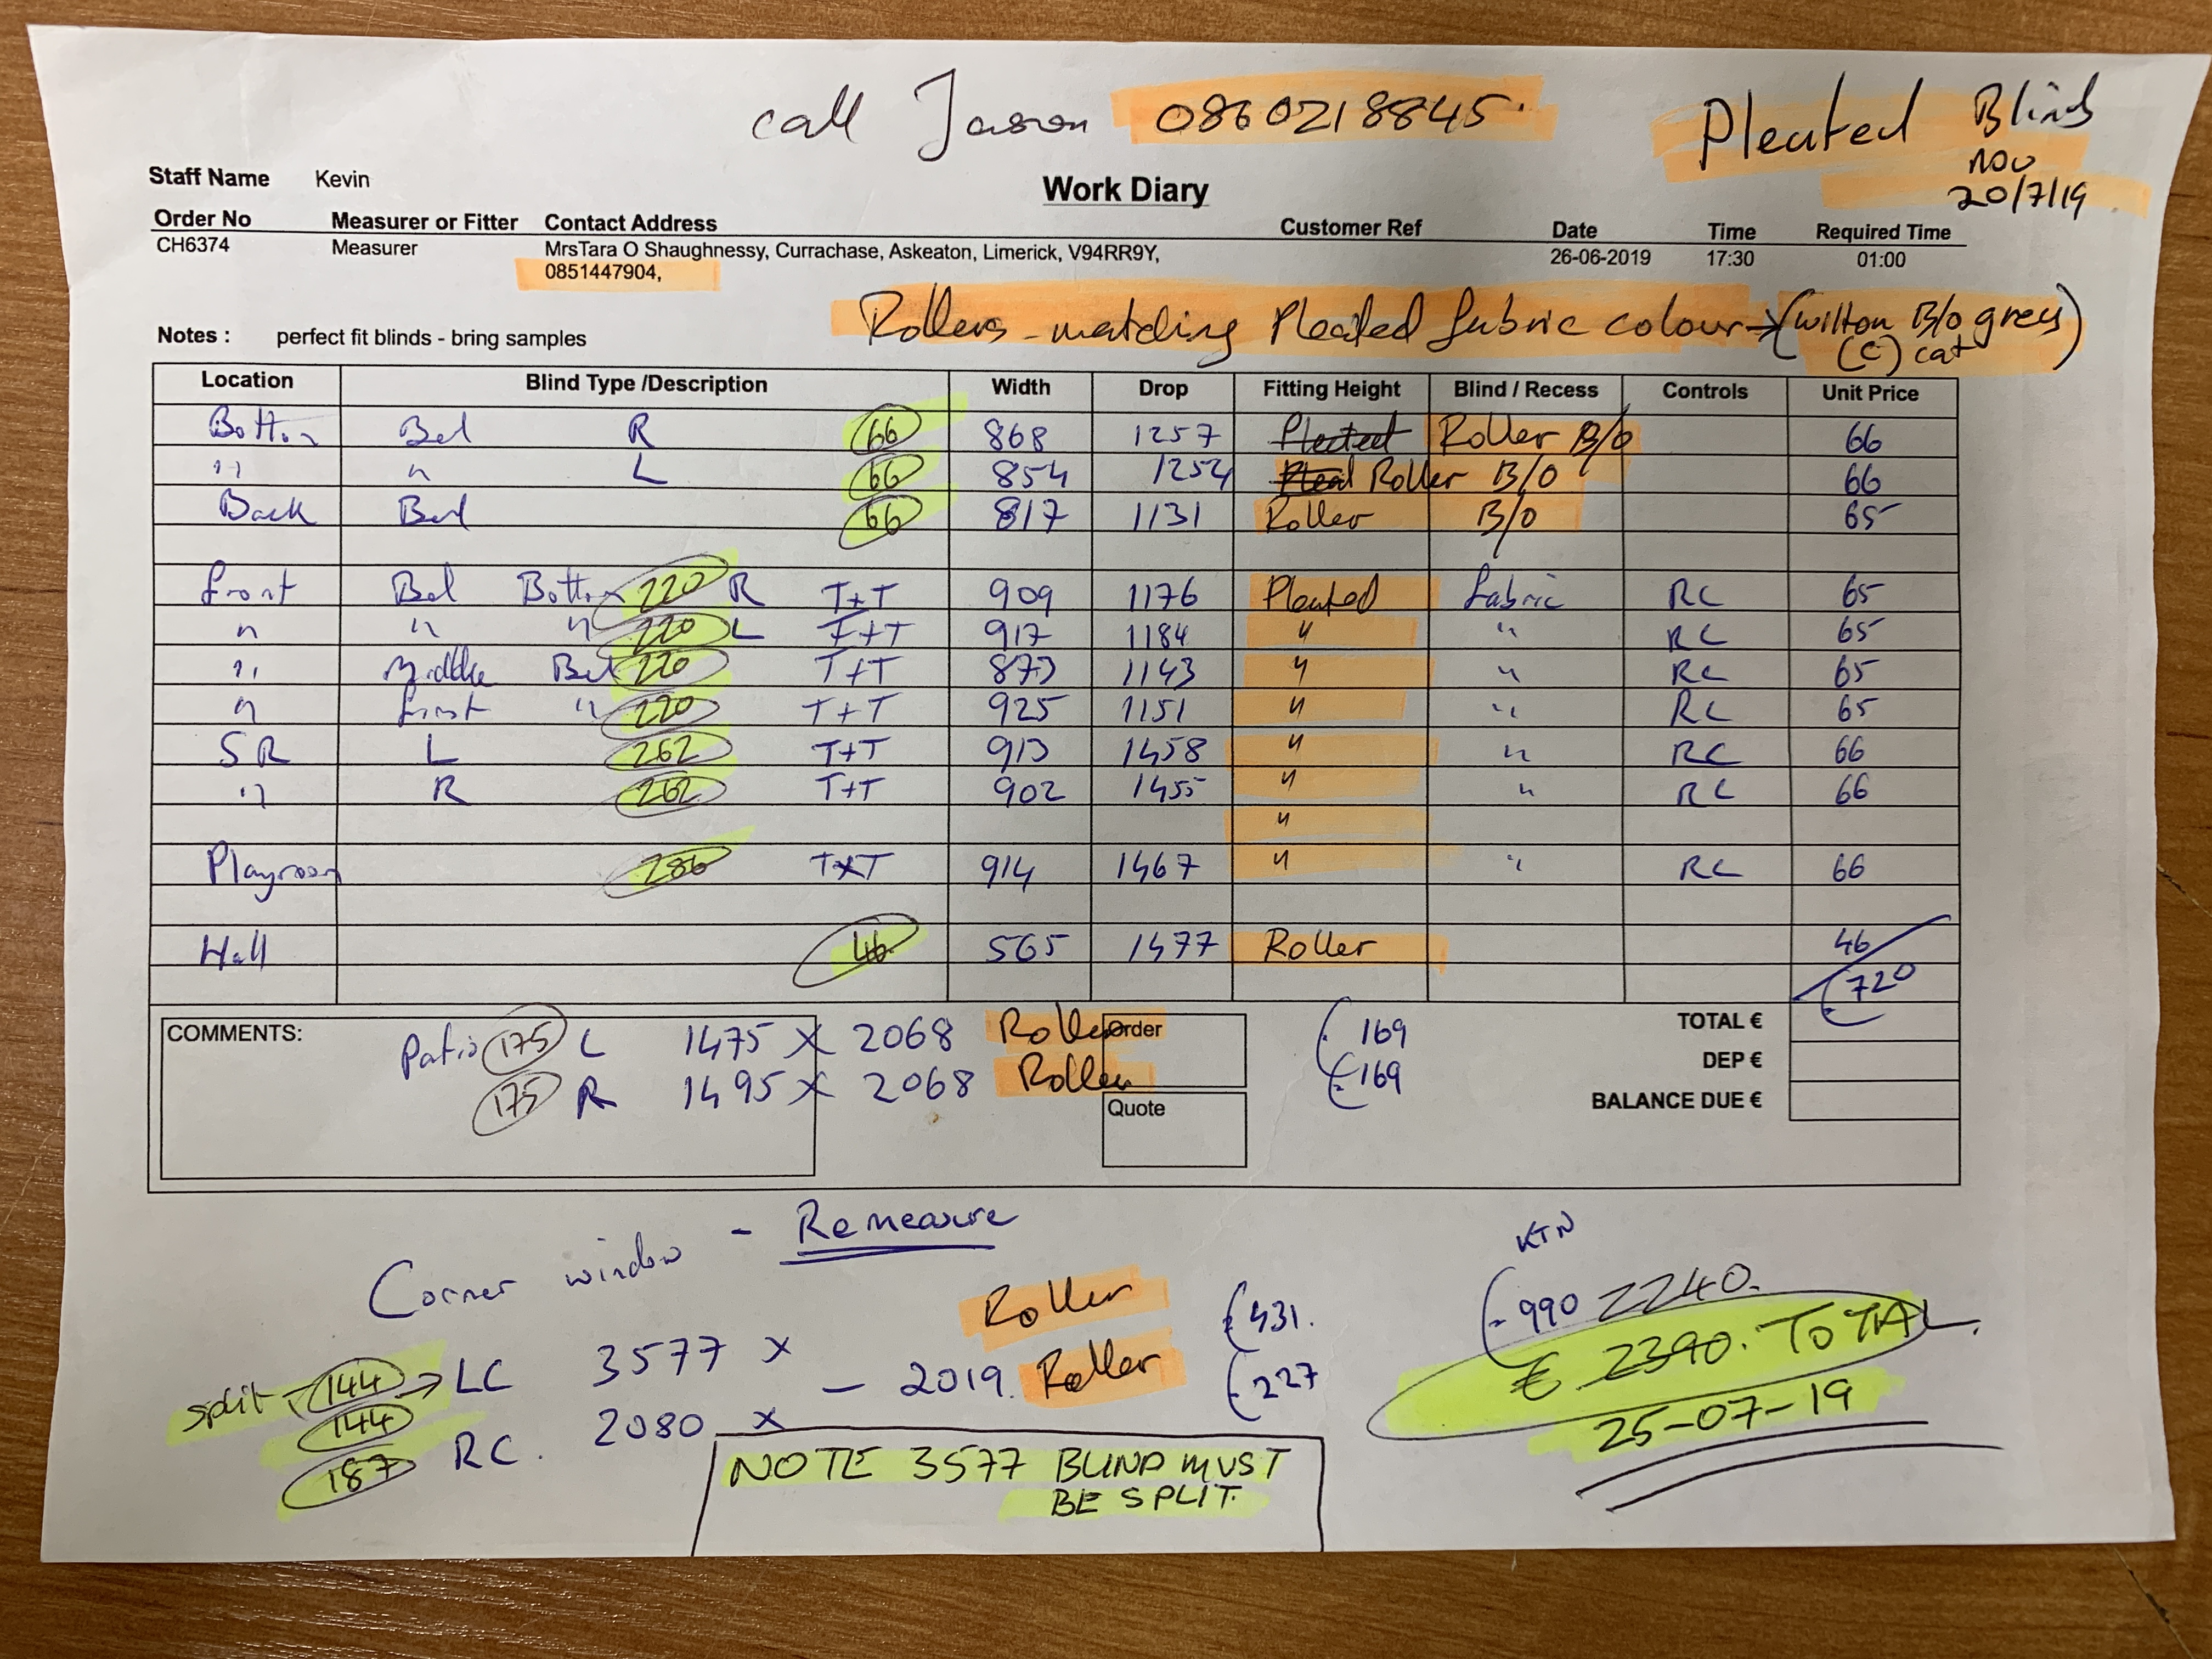 call Jason 0860218845.
Pleated Blinds
nov
20/7/19
Staff Name Kevin
Work Diary
Order No Measurer or Fitter Contact Address Customer Ref Date Time Required Time
CH6374 Measurer MrsTara O Shaughnessy, Currachase, Askeaton, Limerick, V94RR9Y, 26-06-2019 17:30 01:00
0851447904,
Rollers - matching Pleated fabric colour → (wilton B/o grey)
(C) cat
Notes : perfect fit blinds - bring samples
Location Blind Type /Description Width Drop Fitting Height Blind / Recess Controls Unit Price
Bottom Bed R 66 868 1257 Pleated Roller B/o 66
" " L 66 854 1254 Pleat Roller B/O 66
Back Bed 66 817 1131 Roller B/o 65
front Bed Bottom 220 R T+T 909 1176 Pleated fabric RC 65
" " " 220 L T+T 917 1184 " " RC 65
" Middle Bed 220 T+T 873 1143 " " RC 65
" first " 220 T+T 925 1151 " " RC 65
SR L 262 T+T 913 1458 " " RC 66
" R 262 T+T 902 1455 " " RC 66
"
Playroom 286 TxT 914 1467 " " RC 66
Hall 46 565 1477 Roller 46
€720
COMMENTS: Patio 175 L 1475 x 2068 Roller Order €169 TOTAL €
175 R 1495 x 2068 Roller €169 DEP €
Quote BALANCE DUE €
Corner window - Remeasure
KTN
Roller €431. €990 2240.
split - 144 → LC 3577 x
- 2019. Roller €227 € 2390. TOTAL
144
187 RC. 2080 x
25-07-19
NOTE 3577 BLIND MUST
BE SPLIT.